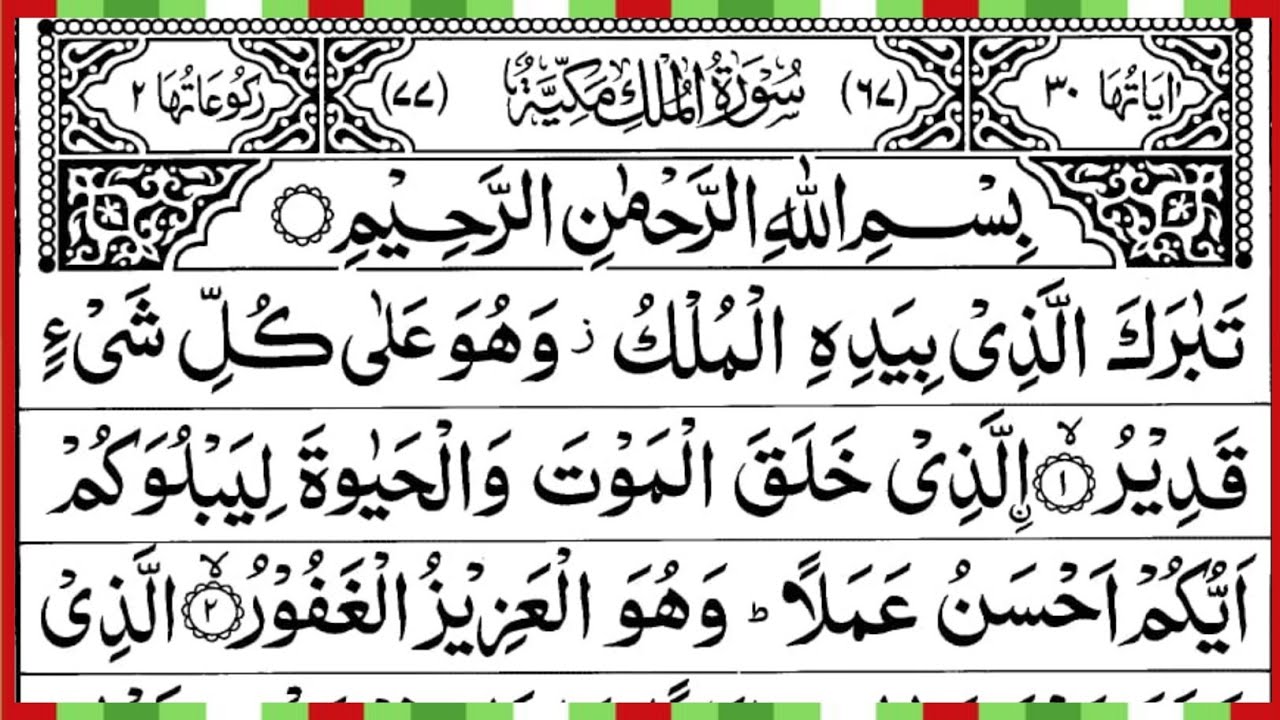 اٰيَاتُهَا ٣٠ (٦٧) سُوْرَةُ الْمُلْكِ مَكِّيَّةٌ (٧٧) رُكُوْعَاتُهَا ٢
بِسْمِ اللّٰهِ الرَّحْمٰنِ الرَّحِيْمِ
تَبٰرَكَ الَّذِىْ بِيَدِهِ الْمُلْكُ ز وَهُوَ عَلٰى كُلِّ شَىْءٍ
قَدِيْرُ ۙ۝١ اۨلَّذِىْ خَلَقَ الْمَوْتَ وَالْحَيٰوةَ لِيَبْلُوَكُمْ
اَيُّكُمْ اَحْسَنُ عَمَلًا ؕ وَهُوَ الْعَزِيْزُ الْغَفُوْرُ ۙ۝٢ الَّذِىْ